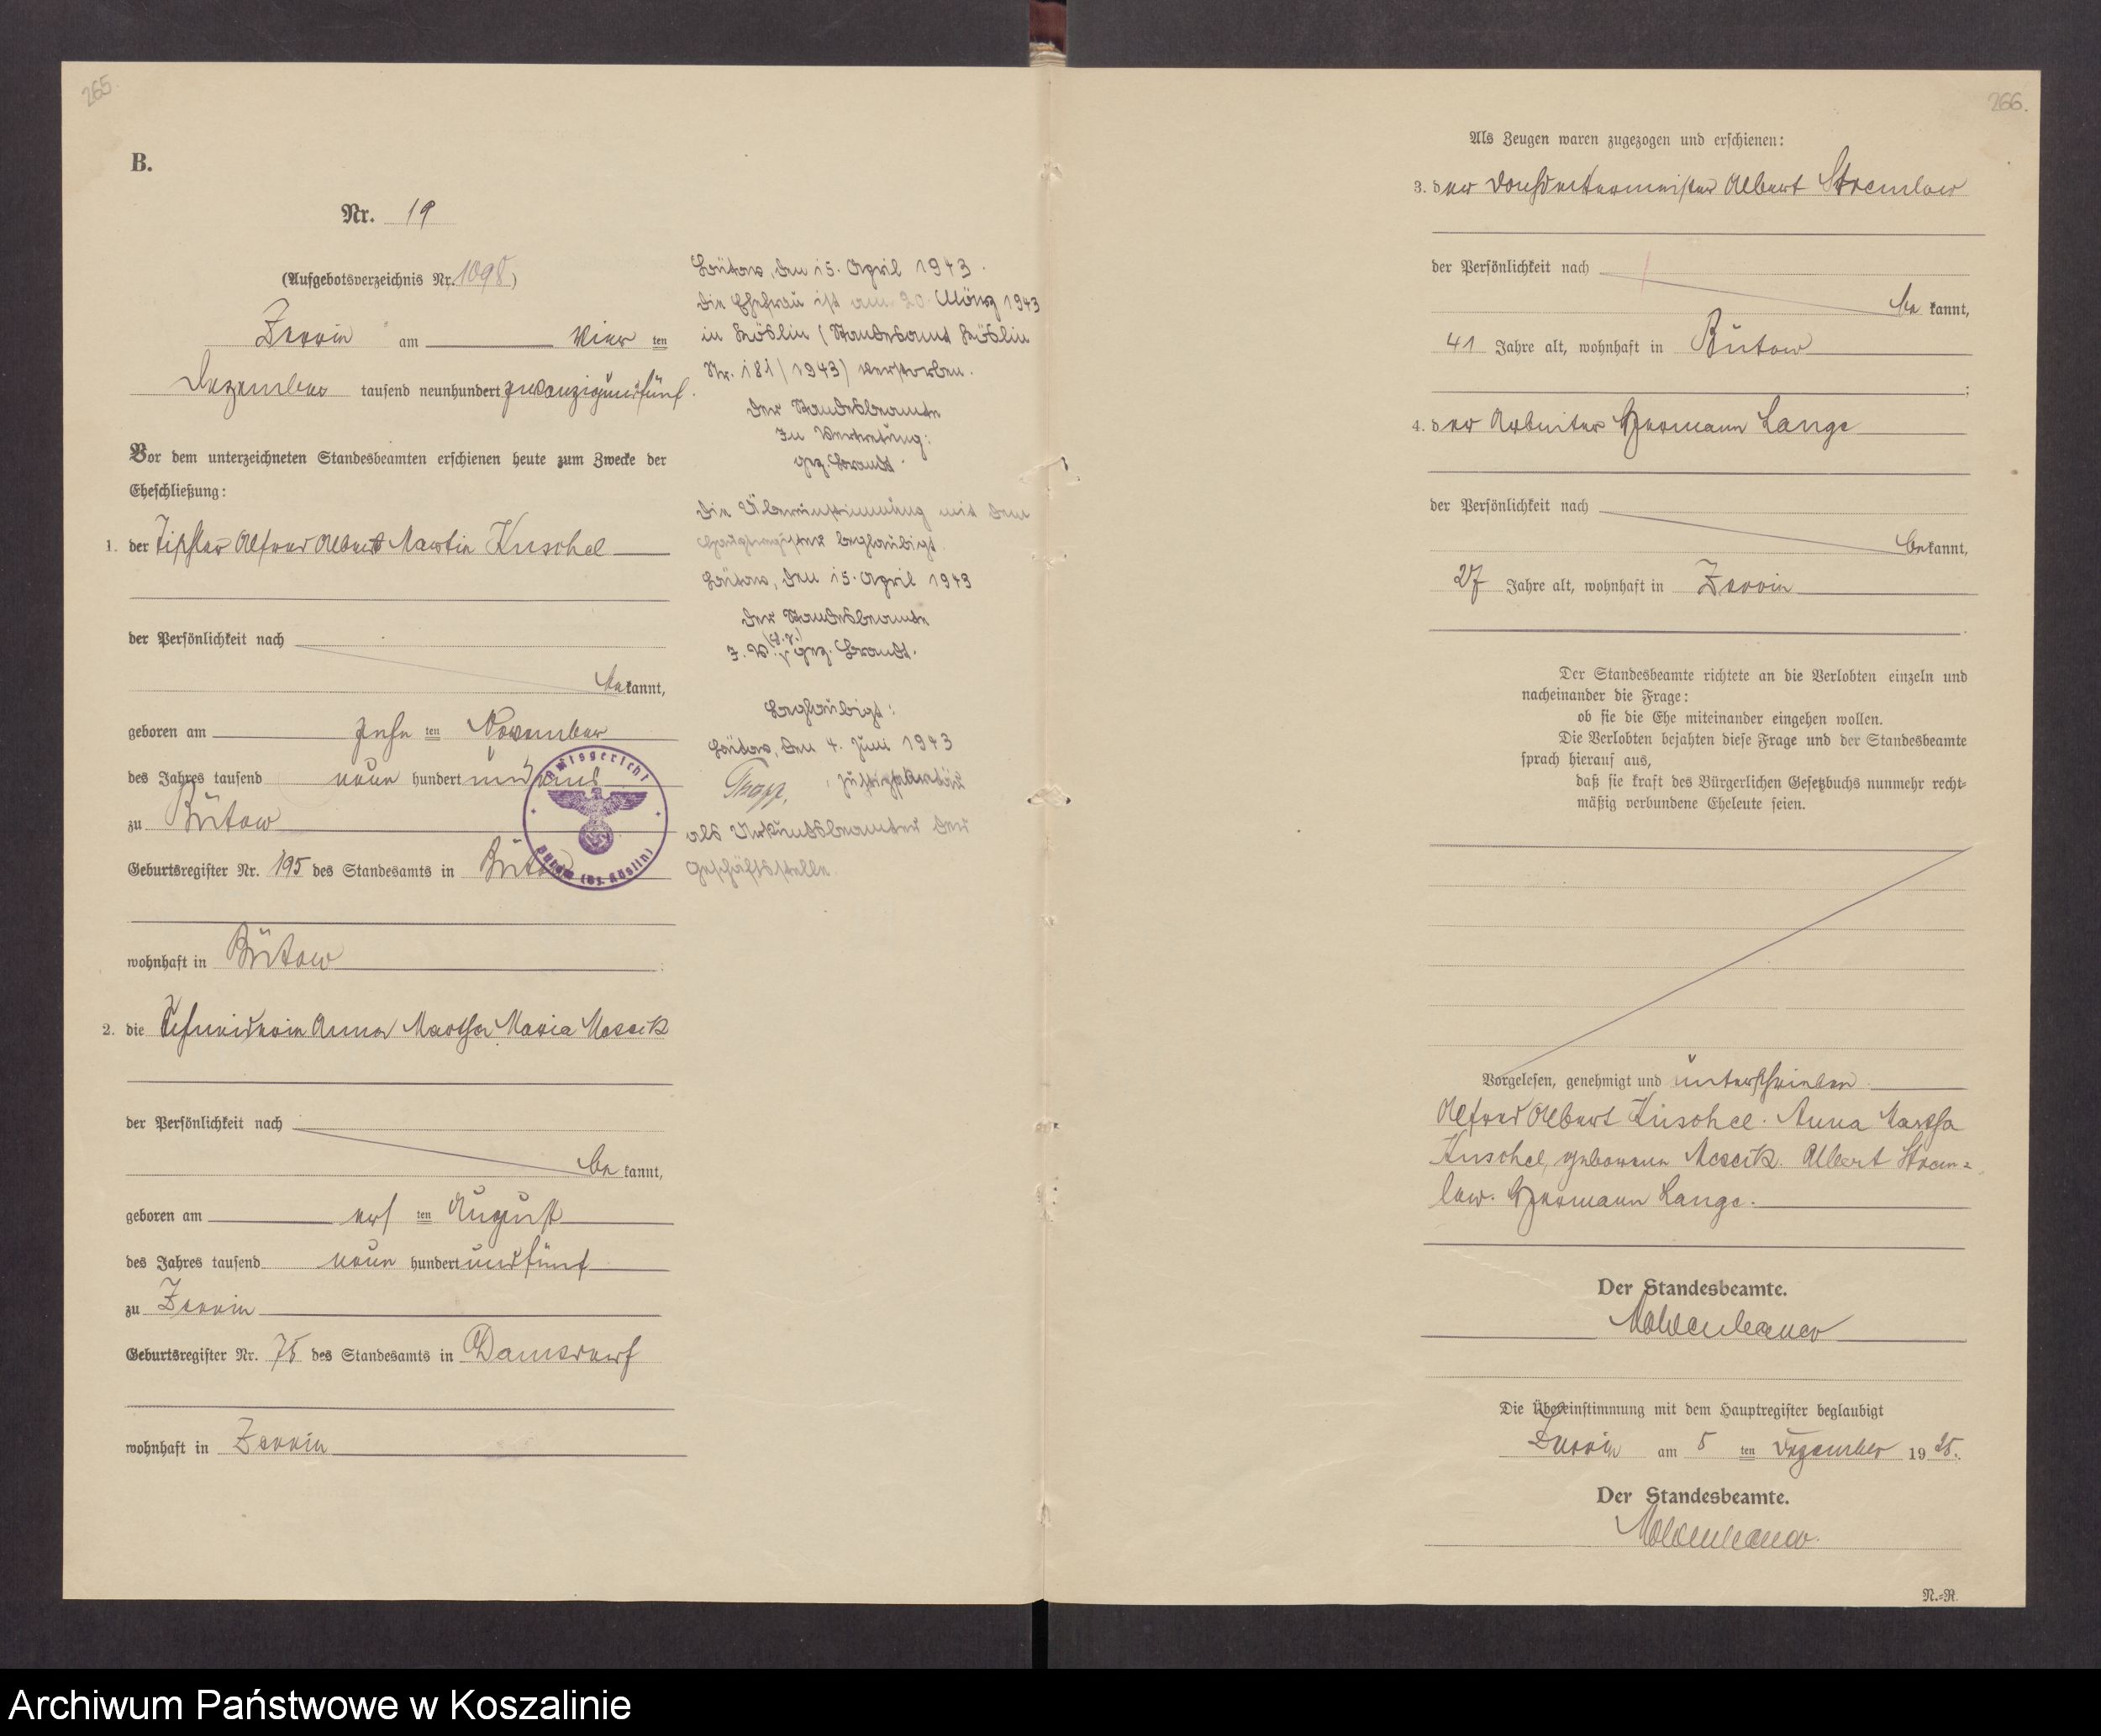 265.
B.
Nr. 19
(Aufgebotsverzeichnis Nr. 1098)
Zerrin am vier ten
Dezember tausend neunhundert zwanzigundfünf.
Vor dem unterzeichneten Standesbeamten erschienen heute zum Zwecke der
Eheschließung:
1. der Tischler Alfred Albert Martin Kuschel
der Persönlichkeit nach
be kannt,
geboren am zehn ten November
des Jahres tausend neun hundert und
zu Bütow
Geburtsregister Nr. 195 des Standesamts in Bütow
wohnhaft in Bütow
2. die Schneiderin Anna Martha Maria
der Persönlichkeit nach
be kannt,
geboren am elf ten August
des Jahres tausend neun hundert undfünf
zu Zerrin
Geburtsregister Nr. 75 des Standesamts in Damsdorf
wohnhaft in Zerrin
Bütow, den 15. April 1943.
Die Ehefrau ist am 20. März 1943
in Köslin (Standesamt Köslin
Nr. 181/1943) verstorben.
Der Standesbeamte
In Vertretung:
gez. Brandt.
Die Übereinstimmung mit dem
Hauptregister beglaubigt.
Bütow, den 15. April 1943
Der Standesbeamte
(L.S.)
I. V. gez. Brandt.
Beglaubigt:
Bütow, den 4. Juni 1943
, Justizsekretär
als Urkundsbeamter der
Geschäftsstelle.
Amtsgericht
Bütow (Bz. Köslin)
266.
Als Zeugen waren zugezogen und erschienen:
3. der Albert Stremlow
der Persönlichkeit nach
be kannt,
41 Jahre alt, wohnhaft in Bütow
;
4. der Arbeiter Hermann Lange
der Persönlichkeit nach
be kannt,
27 Jahre alt, wohnhaft in Zerrin
Der Standesbeamte richtete an die Verlobten einzeln und
nacheinander die Frage:
ob sie die Ehe miteinander eingehen wollen.
Die Verlobten bejahten diese Frage und der Standesbeamte
sprach hierauf aus,
daß sie kraft des Bürgerlichen Gesetzbuchs nunmehr recht-
mäßig verbundene Eheleute seien.
Vorgelesen, genehmigt und unterschrieben
Alfred Albert Kuschel. Anna Martha
Kuschel, geborene Albert Strem=
low. Hermann Lange.
Der Standesbeamte.
Die Übereinstimmung mit dem Hauptregister beglaubigt
Zerrin am 5 ten Dezember 19 25.
Der Standesbeamte.
N.-R.
Archiwum Państwowe w Koszalinie